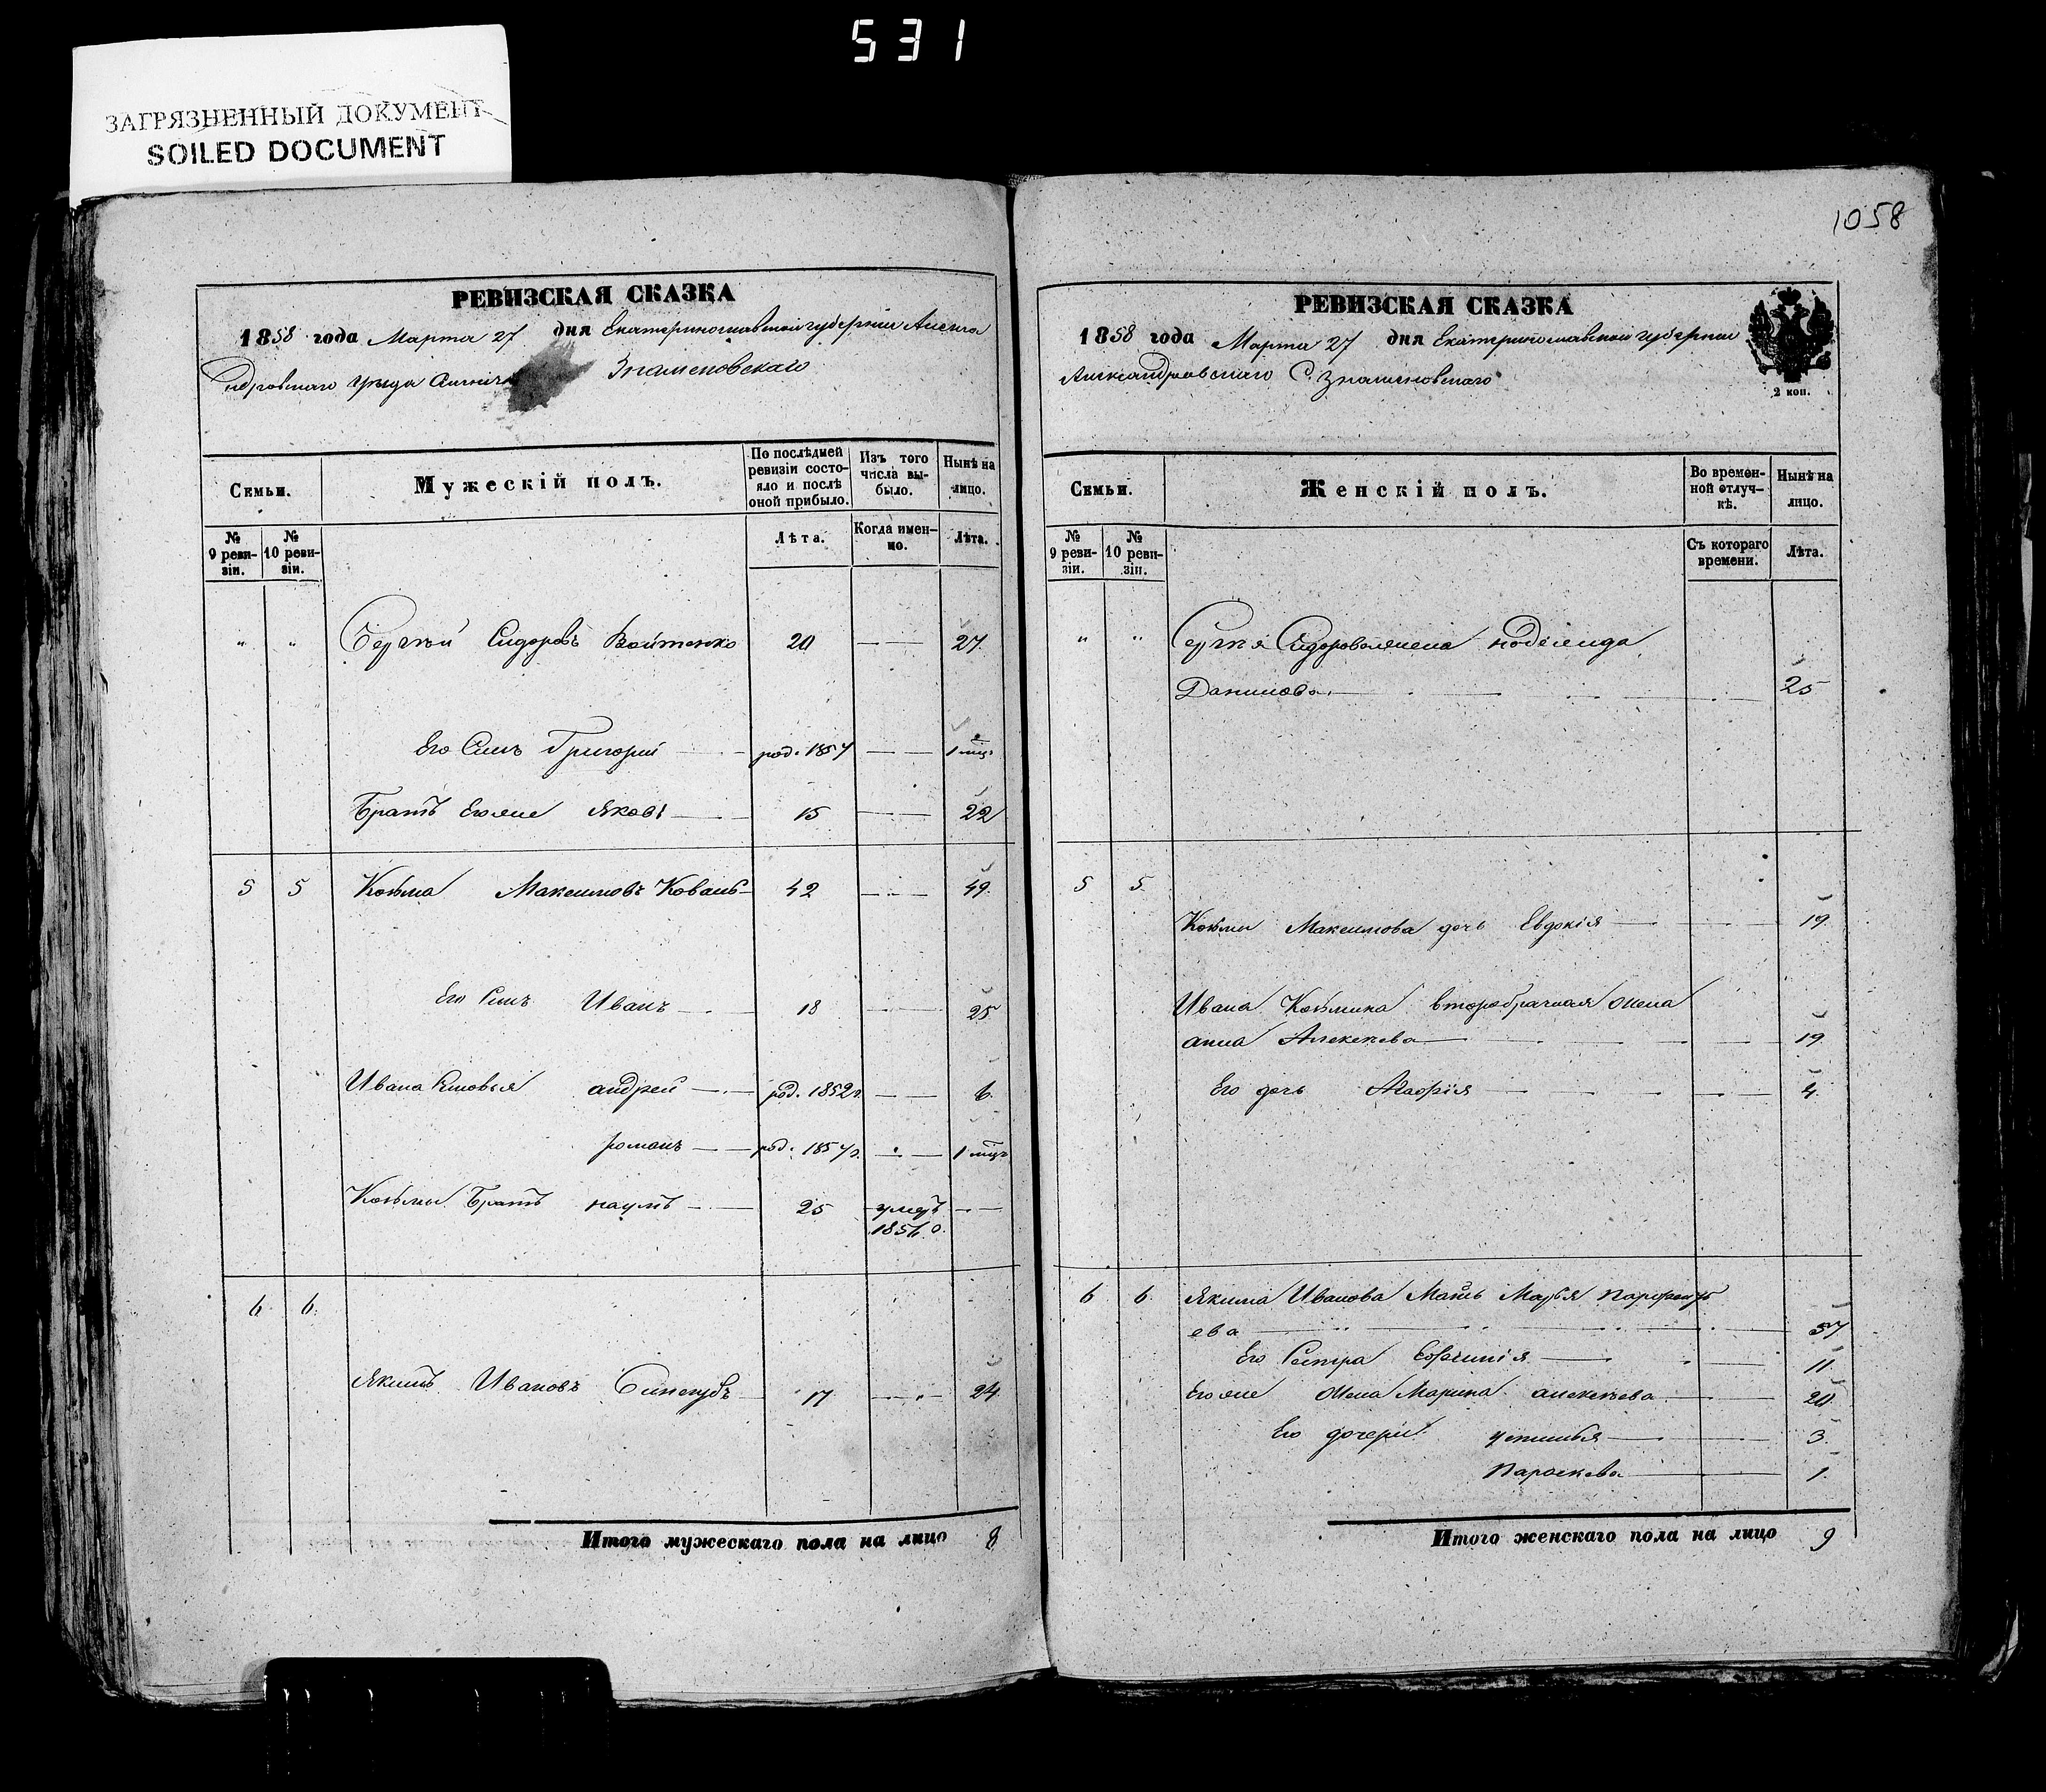 531
ЗАГРЯЗНЕННЫЙ ДОКУМЕНТ
SOILED DOCUMENT
РЕВИЗСКАЯ СКАЗКА
1858 года Марта 27 дня Екатеринославской губернiи Алекса
ндровскаго уезда Знаменовскаго
Семьи.
Мужескiй полъ.
По послѣдней ревизiи состояло и послѣ оной прибыло.
Изъ того числа выбыло.
Нынѣ на лицо.
№ 9 ревизiи.
№ 10 ревизiи.
Лѣта.
Когда именно.
Лѣта.
" " Сергѣй Сидоровъ Войтенко 20 — 27.
Его Сынъ Григорiй — род. 1857 — 1 мѣц.
Братъ Егоже Яковъ — 15 — 22
5 5 Козьма Максимовъ Коваль — 42 — 49.
Его Сынъ Иванъ — 18 — 25
Ивана Сыновья андрей — род. 1852г. — 6.
романъ — род. 1857г. — 1 мѣц.
Козьмы Братъ наумъ — 25 умеръ —
6 6. Якимъ Ивановъ Синегубъ 17 — 24.
Итого мужескаго пола на лицо 8
1058
РЕВИЗСКАЯ СКАЗКА
1858 года Марта 27 дня Екатеринославской губернiи
Александровскаго С. Знаменовскаго
2 коп.
Семьи.
Женскiй полъ.
Во временной отлучкѣ.
Нынѣ на лицо.
№ 9 ревизiи.
№ 10 ревизiи.
Съ котораго времени.
Лѣта.
" " Сергѣя Сидорова жена
Данилова — 25
5 5. Козьмы Максимова дочь Евдокiя — 19.
Ивана Козьмина второбрачная жена
анна Алексѣева — 19
Его дочь Агафiя — 4.
6 6. Якима Иванова Мать Марья Парфенть
ева — 57
Его Сестра Евфимiя — 11.
Егоже жена Марина алексѣева — 20.
Его дочери устинья — 3.
Параскева — 1.
Итого женскаго пола на лицо 9